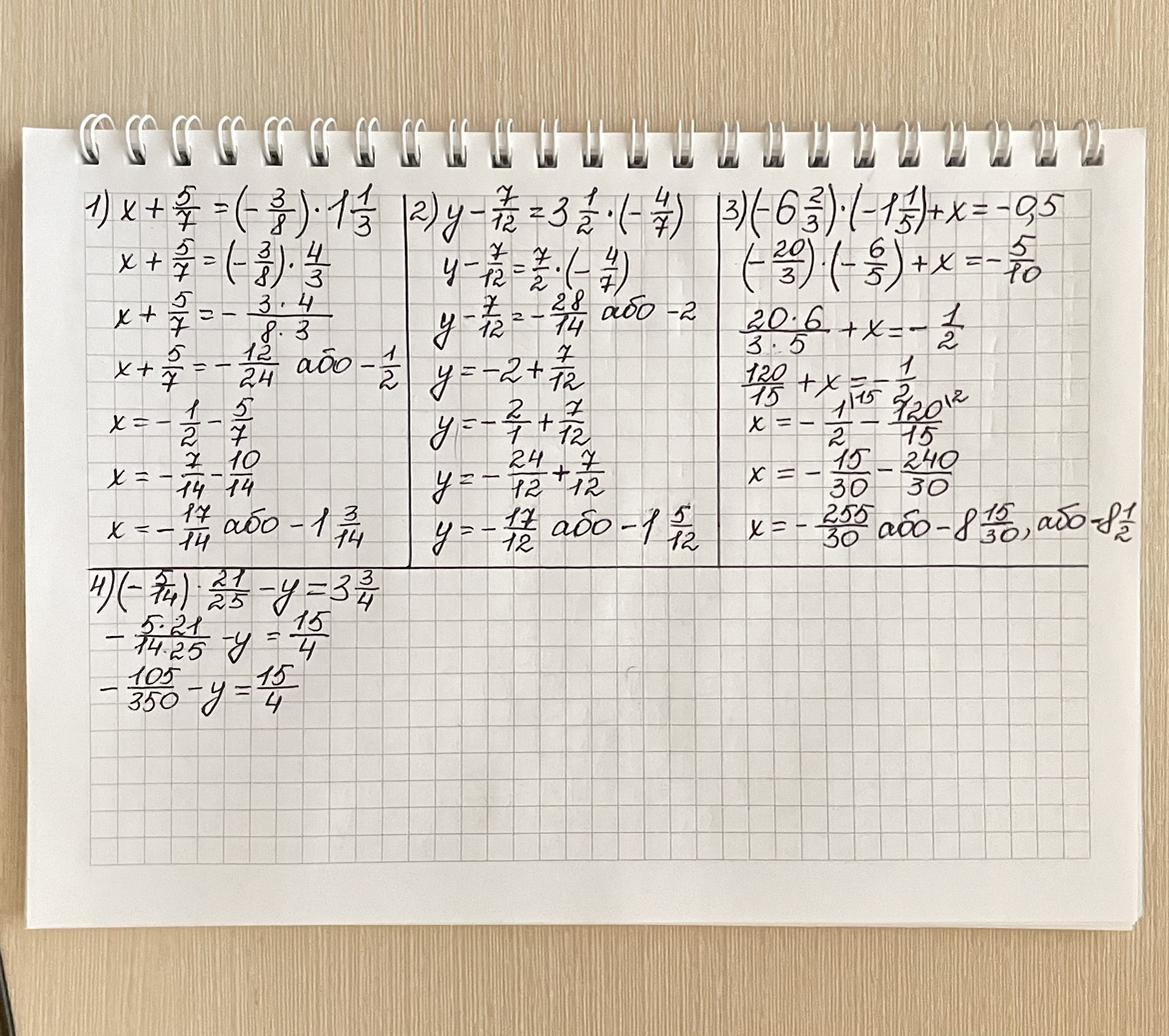 1) x + 5/7 = (- 3/8) · 1 1/3
x + 5/7 = (- 3/8) · 4/3
x + 5/7 = - 3·4/8·3
x + 5/7 = - 12/24 або - 1/2
x = - 1/2 - 5/7
x = - 7/14 - 10/14
x = - 17/14 або - 1 3/14
2) y - 7/12 = 3 1/2 · (- 4/7)
y - 7/12 = 7/2 · (- 4/7)
y - 7/12 = - 28/14 або -2
y = -2 + 7/12
y = - 2/1 + 7/12
y = - 24/12 + 7/12
y = - 17/12 або - 1 5/12
3) (-6 2/3) · (-1 1/5) + x = -0,5
(- 20/3) · (- 6/5) + x = - 5/10
20·6/3·5 + x = - 1/2
120/15 + x = - 1/2
x = - 1/2 \15 - 120/15 \2
x = - 15/30 - 240/30
x = - 255/30 або - 8 15/30, або -8 1/2
4) (- 5/14) · 21/25 - y = 3 3/4
- 5·21/14·25 - y = 15/4
- 105/350 - y = 15/4